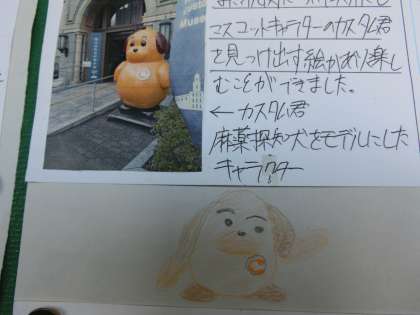 マスコットキャラクターのカスタム君
を見つけ出す絵があり楽し
むことができました。
← カスタム君
麻薬探知犬をモデルにした
キャラクター
Museum